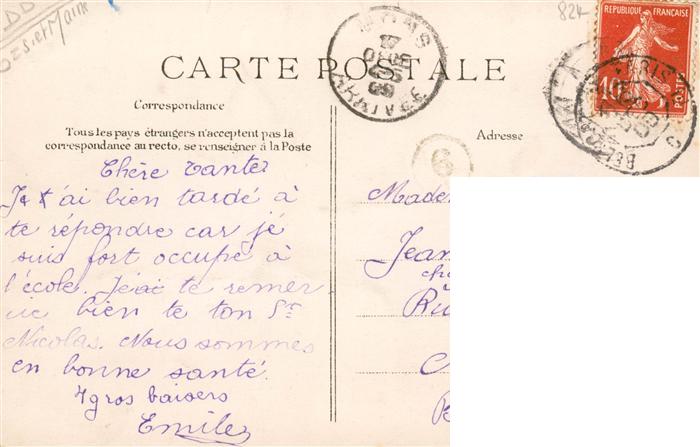 DD
Oise et Marne
824
REPUBLIQUE FRANÇAISE
10
POSTES
PARIS
CARTE POSTALE
Correspondance
Tous les pays étrangers n'acceptent pas la
correspondance au recto, se renseigner à la Poste
Adresse
6
Chère Tante
J't'ai bien tardé à
te répondre car je
suis fort occupé à
l'école. J'ai te remer
cie bien te ton St
Nicolas. Nous sommes
en bonne santé.
4 gros baisers
Emile
Madem
Jean
ch
Ru